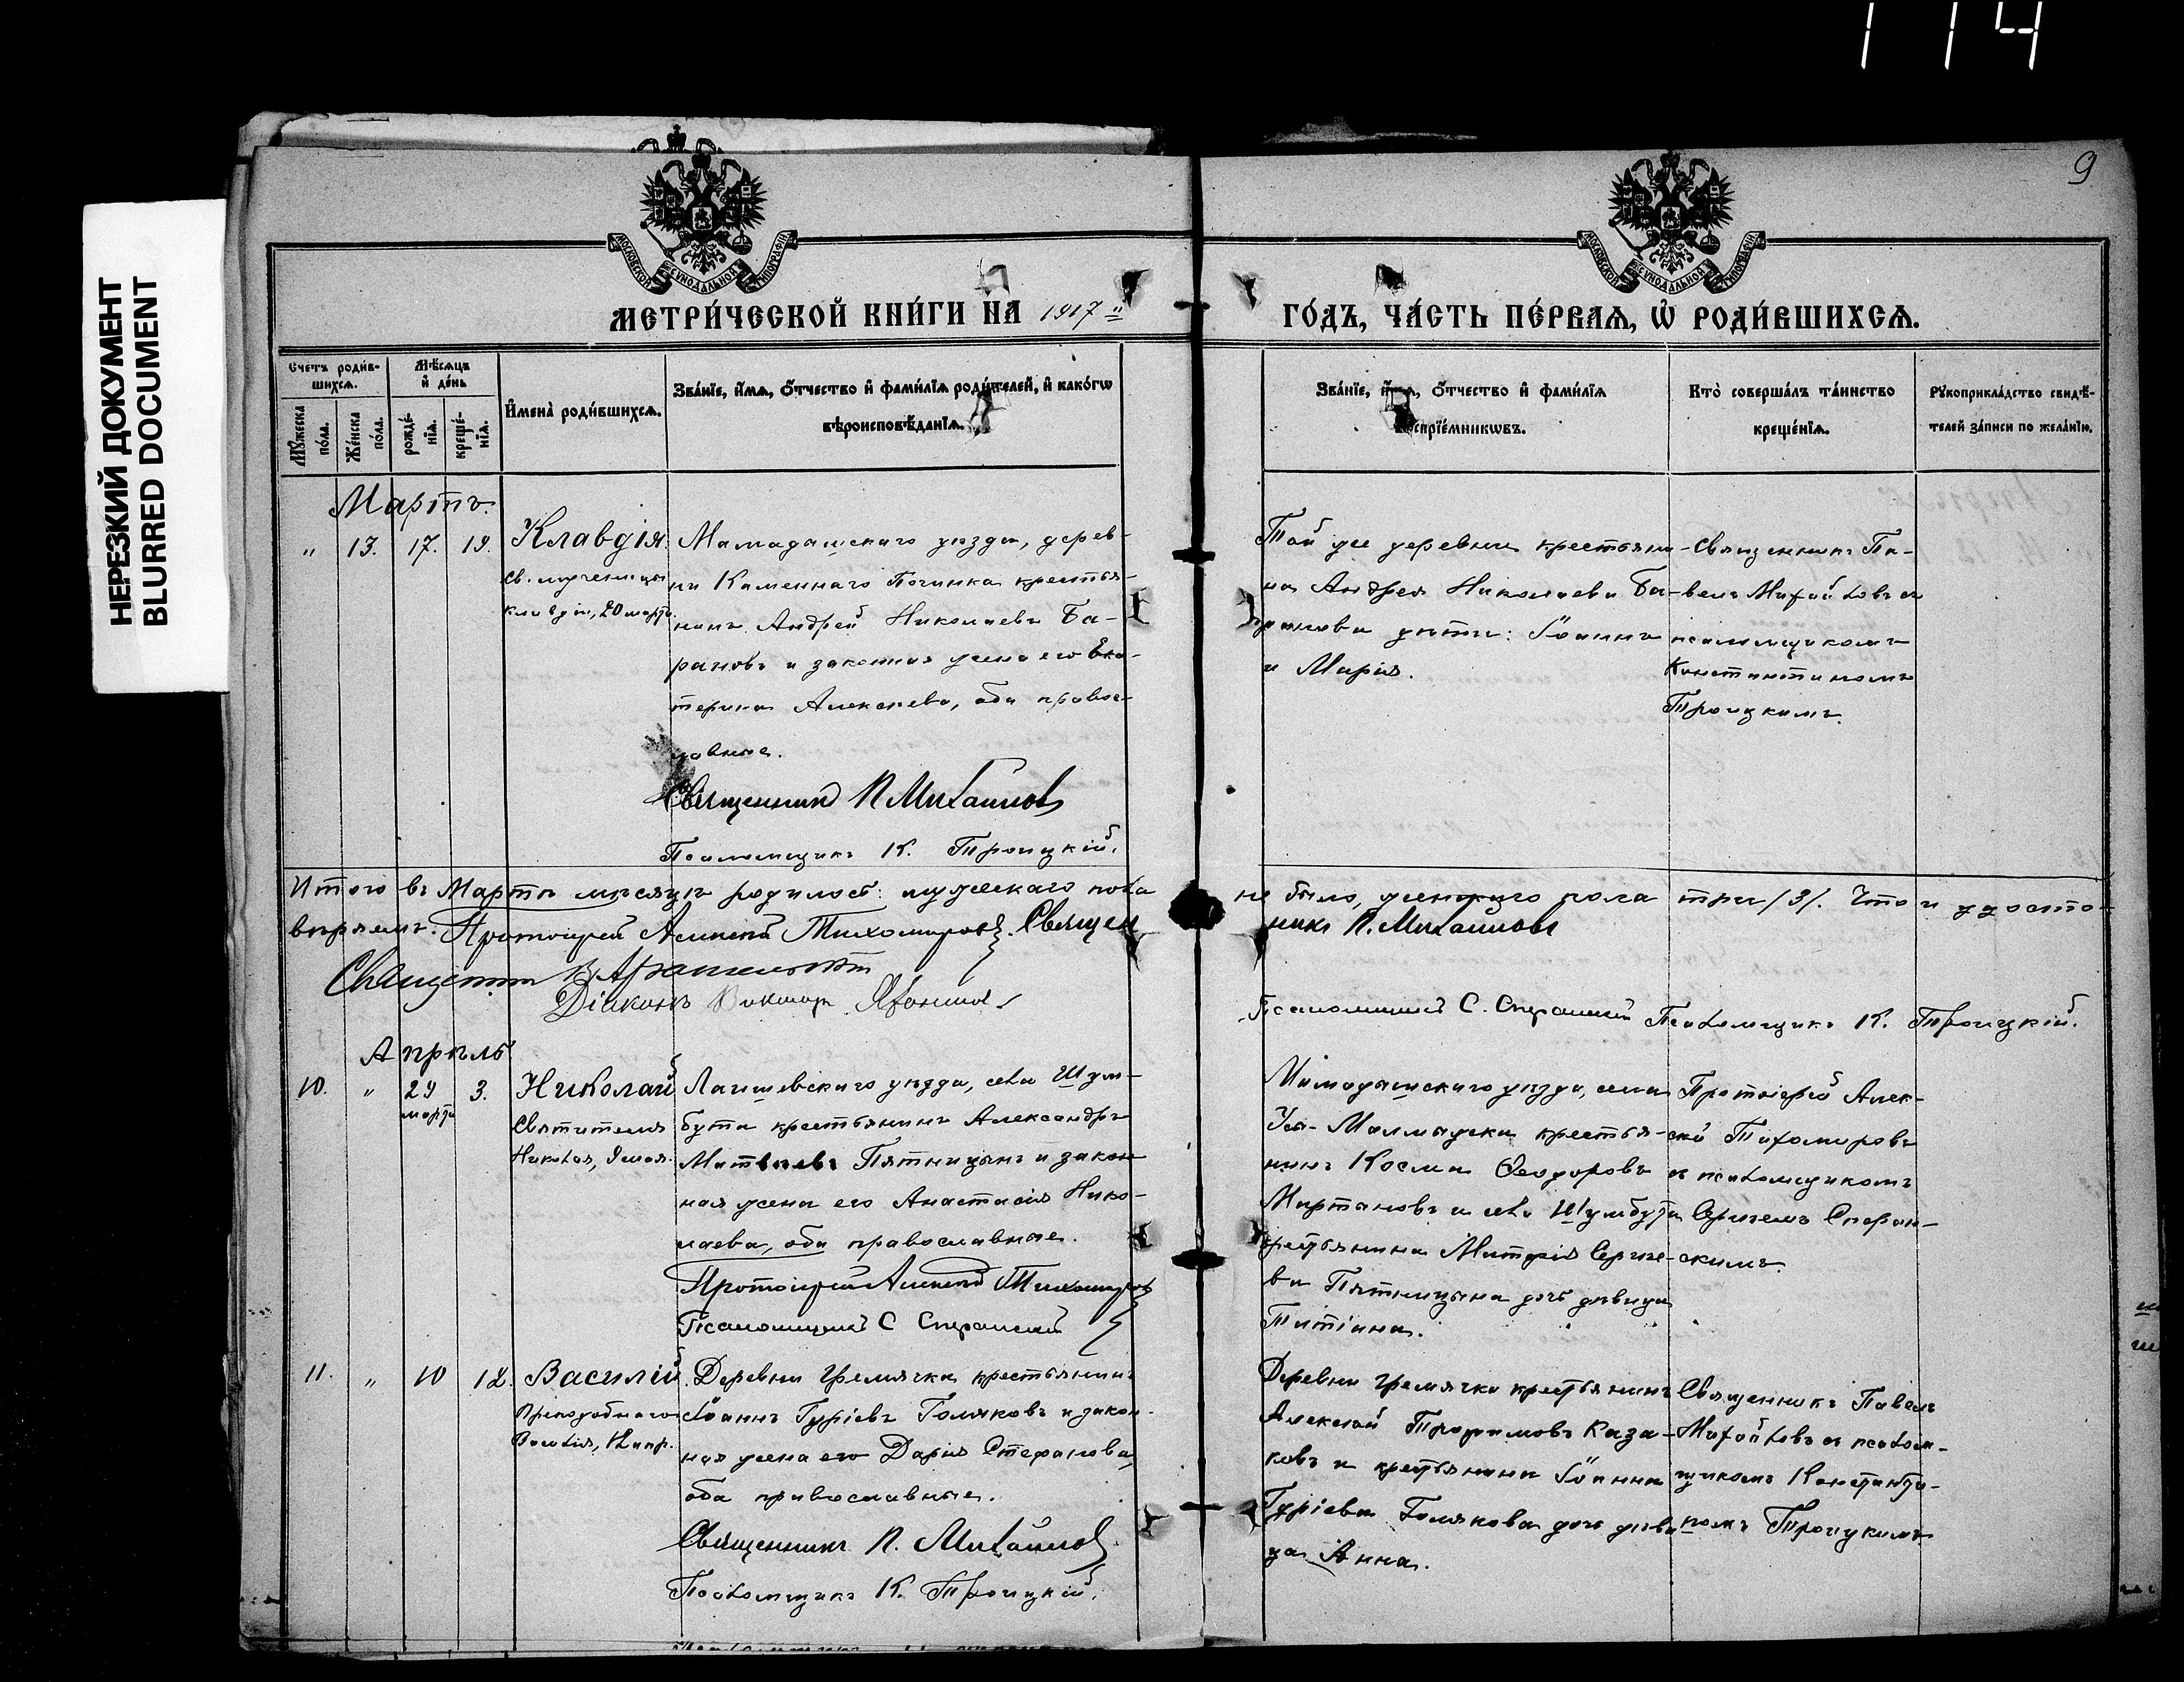 114
НЕРЕЗКИЙ ДОКУМЕНТ
BLURRED DOCUMENT
9
МОСКОВСКОЙ СѴНОДАЛЬНОЙ ТИПОГРАФІИ
МОСКОВСКОЙ СѴНОДАЛЬНОЙ ТИПОГРАФІИ
МЕТРИ́ЧЕСКОЙ КНИ́ГИ НА 1917
ГО́ДЪ, ЧА́СТЬ ПЕ́РВАѦ, Ѡ РОДИ́ВШИХСѦ.
Счетъ роди́в-
шихсѧ.
Мѣ́сѧцъ
и де́нь
Мꙋ́жеска
по́ла.
Же́нска
по́ла.
рожде́-
нїѧ.
креще́-
нїѧ.
Имена̀ роди́вшихсѧ.
Зва́нїе, и́мѧ, о́тчество и фами́лїѧ роди́телей, и како́гѡ
вѣроисповѣ́данїѧ.
Зва́нїе, и́мѧ, о́тчество и фами́лїѧ
воспрїе́мникѡвъ.
Кто̀ соверша́лъ та́инство
креще́нїѧ.
Рꙋкоприкла́дство свидѣ́-
телей за́писи по жела́нїю.
Мартъ.
" 13. 17. 19. Клавдія.
Св. мученицы
Клавдіи, 20 марта.
Мамадышскаго уѣзда, дерев-
ни Каменнаго Починка крестья-
нинъ Андрей Николаевъ Ба-
рановъ и законная жена его Ека-
терина Алексѣева, оба правос-
лавные.
Священникъ П Михайловъ
Псаломщикъ К. Троицкій.
Той же деревни крестьяни-
на Андрея Николаева Ба-
ранова дѣти: Іоаннъ
и Марія.
Священникъ Па-
велъ Михайловъ съ
псаломщикомъ
Константиномъ
Троицкимъ.
Итого въ Мартѣ мѣсяцѣ родилось: мужескаго пола не было, женскаго пола три /3/. Что и удосто-
вѣряемъ. Протоіерей Алексѣй Тихомировъ. Священникъ П. Михайловъ
Священникъ
Діаконъ Викторъ
Псаломщикъ С. Сперанскій Псаломщикъ К. Троицкій.
Апрѣль
10. " 29 3. Николай
марта
Святителя
Николая, 9 мая.
Лаишевскаго уѣзда, села Шум-
бута крестьянинъ Александръ
Матвѣевъ Пятницынъ и закон
ная жена его Анастасія Нико-
лаева, оба православные.
Протоіерей Алексѣй Тихомировъ
Псаломщикъ С Сперанскій
Мамадышскаго уѣзда, села
Усъ-Малмажки крестья-
нинъ Косма Ѳеодоровъ
Мартановъ и села Шумбута
крестьянина Димитрія Сергѣе-
ва Пятницына дочь дѣвица
Татіана.
Протоіерей Алек-
сѣй Тихомировъ
съ псаломщикомъ
Сергіемъ Сперан-
скимъ.
11. " 10 12. Василій
Преподобнаго
Василія, 12 апр.
Деревни Гремячки крестьянинъ
Іоаннъ Гуріевъ Голяковъ и закон-
ная жена его Дарія Стефанова,
оба православные.
Священникъ П. Михайловъ
Псаломщикъ К. Троицкій.
Деревни Гремячки крестьянинъ
Алексѣй Трофимовъ Каза-
ковъ и крестьянина Іоанна
Гуріева Голякова дочь дѣви
ца Анна.
Священникъ Павелъ
Михайловъ съ псалом-
щикомъ Константи-
номъ Троицкимъ.